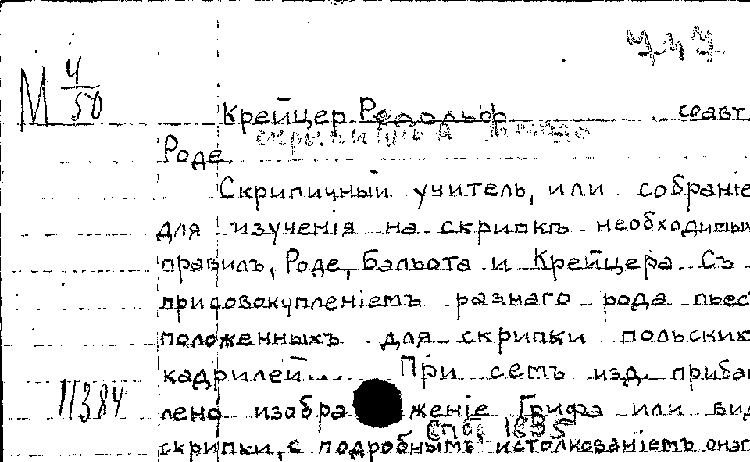 747
М 4/50
Крейцер Родольф соавт
Роде
Скрипичный учитель, или собраніе
для изученія на скрипкѣ необходимых
правилъ, Роде, Бальота и Крейцера Съ
присовокупленіемъ разнаго рода пьес
положенныхъ для скрипки польских
кадрилей... При семъ изд. прибав
11384
лено изображеніе Грифа или вид
СПб, 1835
скрипки, с подробнымъ истолкованіемъ онаг